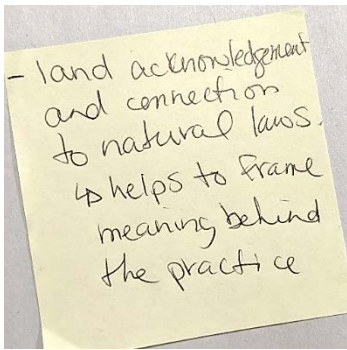 - land acknowledgement
and connection
to natural laws.
↳ helps to frame
meaning behind
the practice